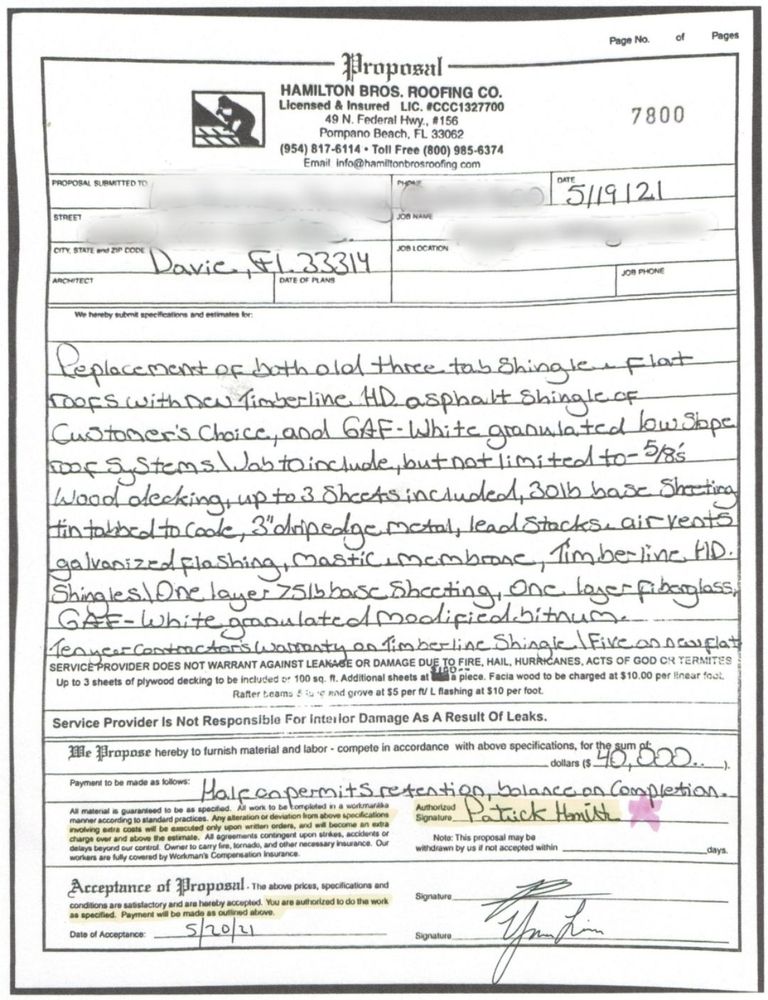 Page No. of Pages
Proposal
HAMILTON BROS. ROOFING CO.
Licensed & Insured LIC. #CCC1327700
49 N. Federal Hwy., #156
Pompano Beach, FL 33062
(954) 817-6114 • Toll Free (800) 985-6374
Email info@hamiltonbrosroofing.com
7800
PROPOSAL SUBMITTED TO
PHONE
DATE 5/19/21
STREET
JOB NAME
CITY, STATE and ZIP CODE Davie, Fl. 33314
JOB LOCATION
ARCHITECT
DATE OF PLANS
JOB PHONE
We hereby submit specifications and estimates for:
Replacement of both old three tab Shingle & flat
roofs with new Timberline HD. asphalt Shingle of
Customer's Choice, and GAF-White granulated low Slope
roof Systems\Job to include, but not limited to- 5/8's
Wood decking, up to 3 Sheets included, 30lb base Sheeting
tin tabbed to Code, 3" dripedge metal, lead Stacks & air vents
galvanized flashing, mastic & membrane, Timberline HD.
Shingles\One layer 75lb base Sheeting, One layer fiberglass,
GAF-White granulated modified bitnum.
Ten year Contractor's Warranty on Timberline Shingle\Five on new flat
SERVICE PROVIDER DOES NOT WARRANT AGAINST LEAKAGE OR DAMAGE DUE TO FIRE, HAIL, HURRICANES, ACTS OF GOD OR TERMITES
Up to 3 sheets of plywood decking to be included or 100 sq. ft. Additional sheets at $100-- a piece. Facia wood to be charged at $10.00 per linear foot.
Rafter beams and grove at $5 per ft/ L flashing at $10 per foot.
Service Provider Is Not Responsible For Interior Damage As A Result Of Leaks.
We Propose hereby to furnish material and labor - compete in accordance with above specifications, for the sum of
dollars ($ 40,000.. ).
Payment to be made as follows: Half on permits retention, balance on Completion.
All material is guaranteed to be as specified. All work to be completed in a workmanlike
manner according to standard practices. Any alteration or deviation from above specifications
involving extra costs will be executed only upon written orders, and will become an extra
charge over and above the estimate. All agreements contingent upon strikes, accidents or
delays beyond our control. Owner to carry fire, tornado, and other necessary insurance. Our
workers are fully covered by Workman's Compensation Insurance.
Authorized
Signature Patrick
Note: This proposal may be
withdrawn by us if not accepted within days.
Acceptance of Proposal - The above prices, specifications and
conditions are satisfactory and are hereby accepted. You are authorized to do the work
as specified. Payment will be made as outlined above.
Date of Acceptance: 5/20/21
Signature
Signature